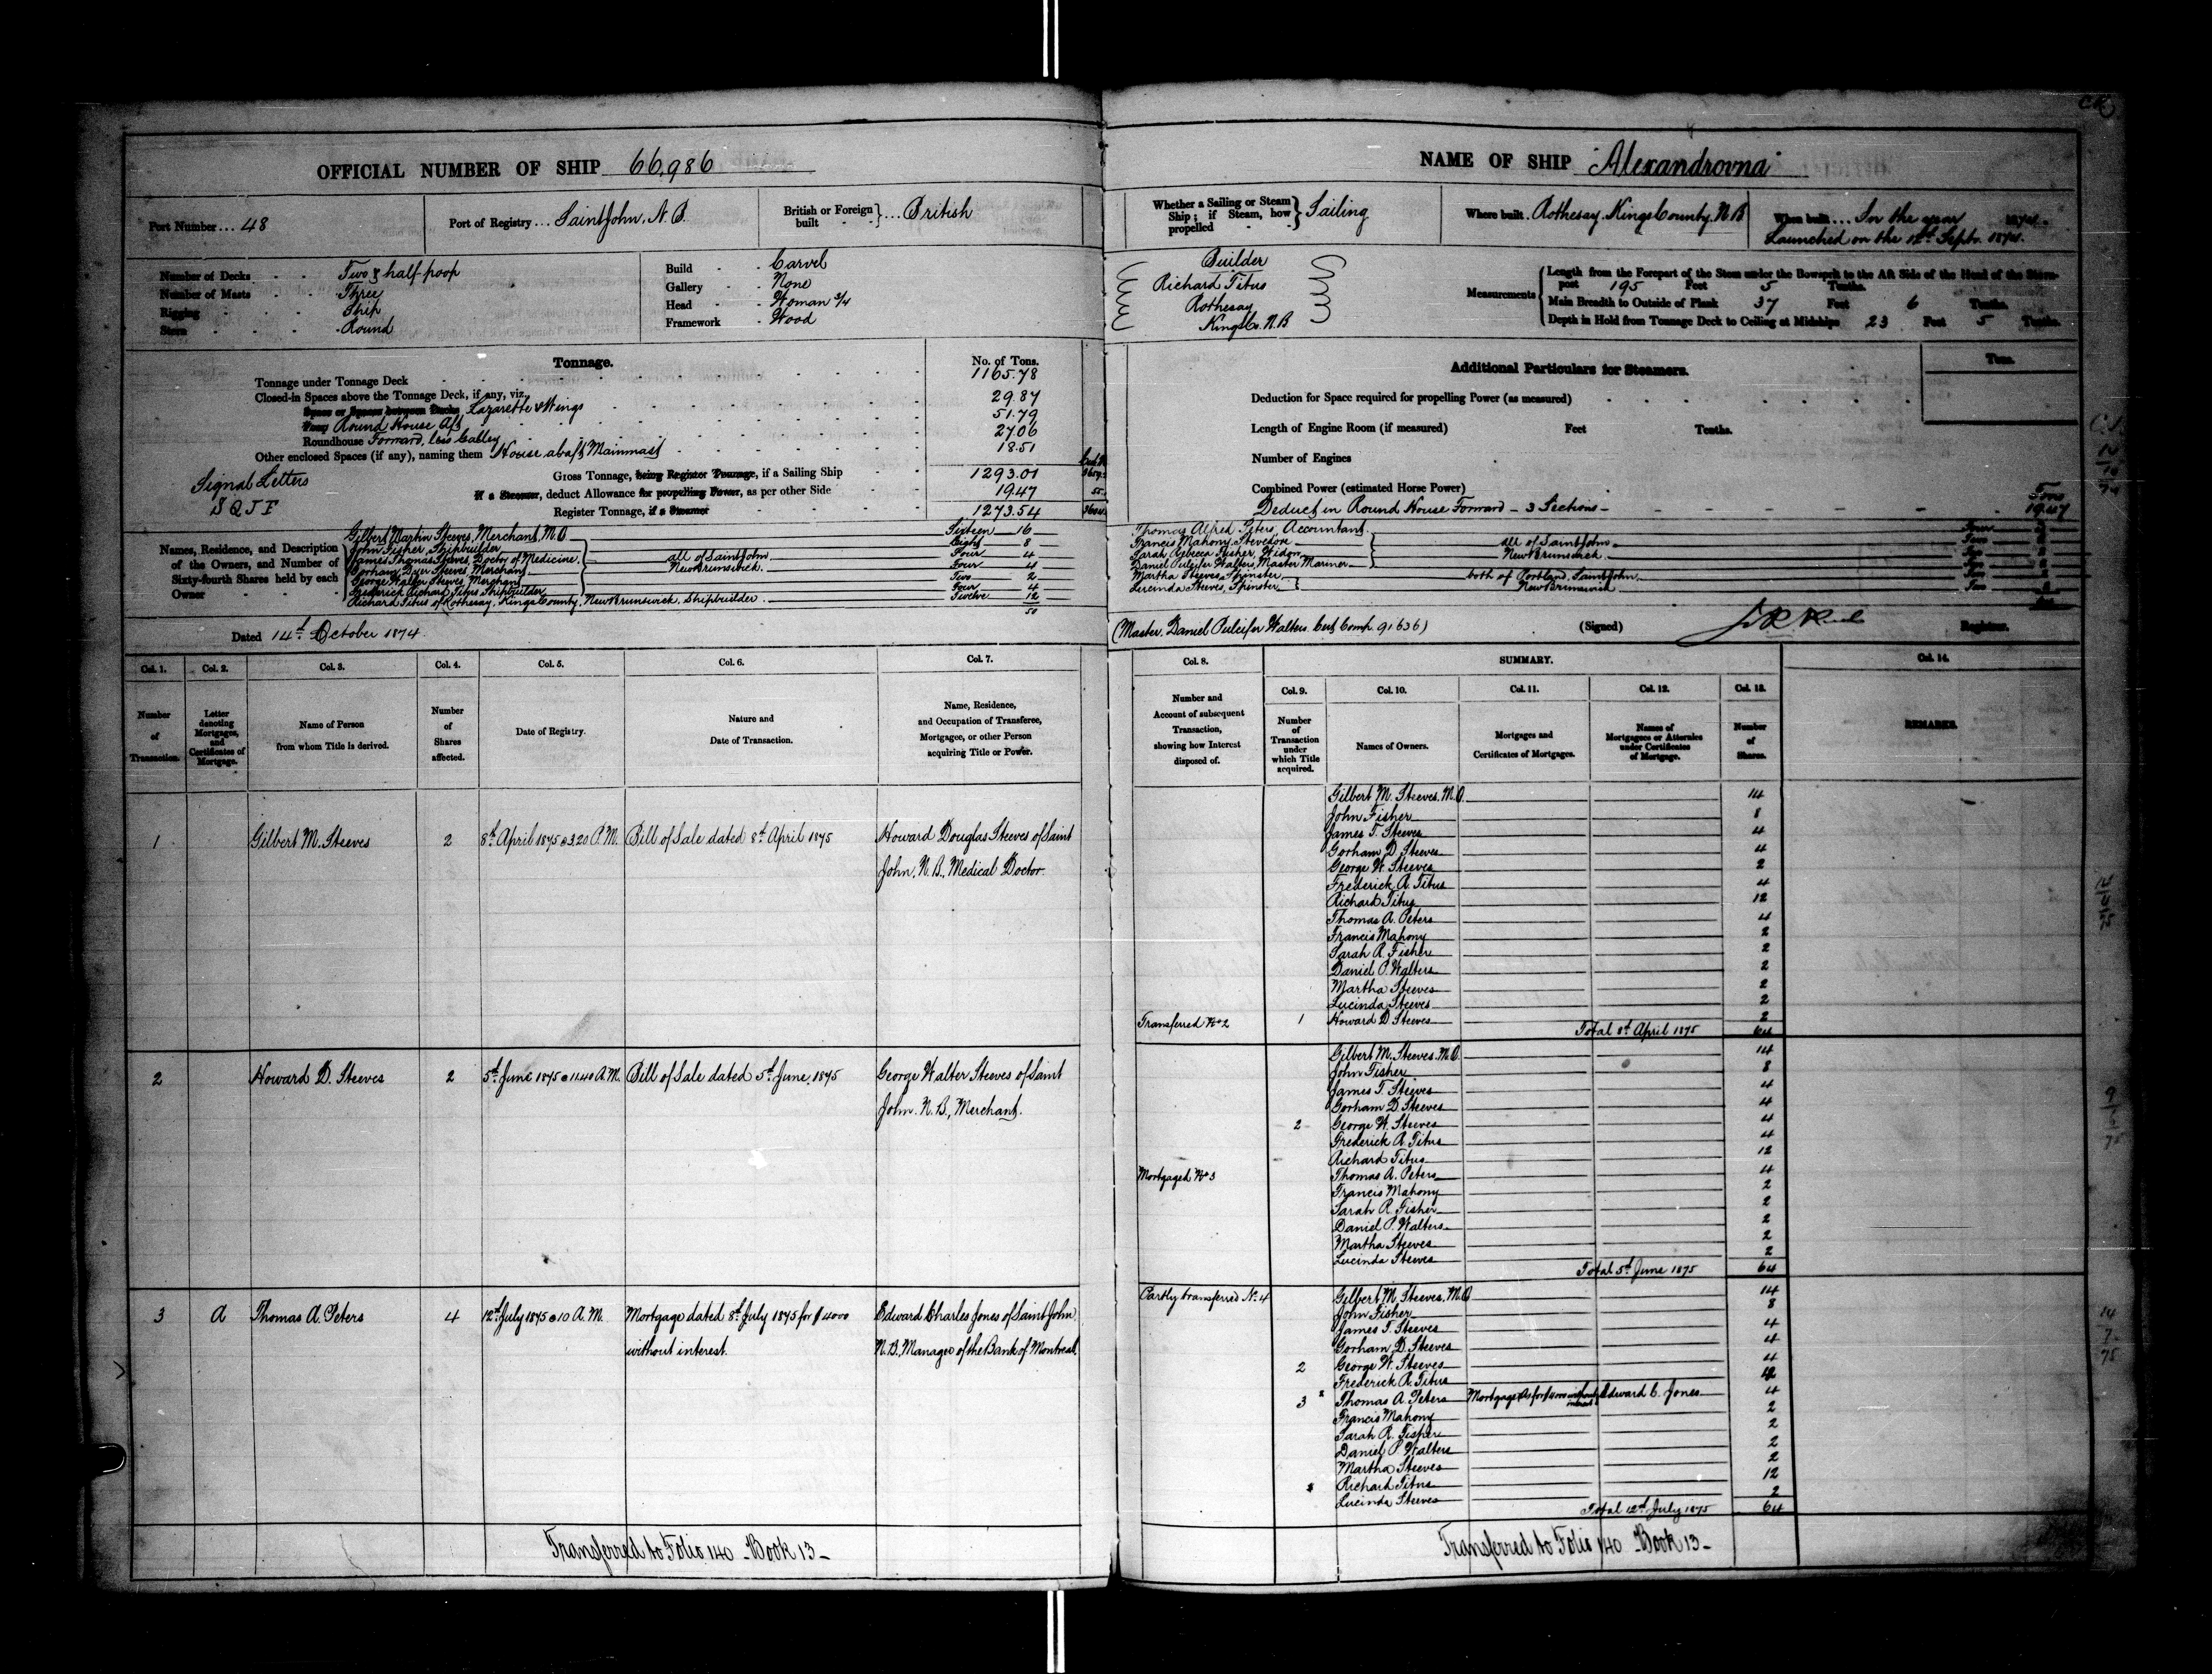 OFFICIAL NUMBER OF SHIP 66,986
Port Number ... 48
Port of Registry ... Saint John, N.B.
British or Foreign built ... British
Number of Decks Two & half poop
Number of Masts Three
Rigging Ship
Stern Round
Build Carvel
Gallery None
Head Woman 3/4
Framework Wood
Tonnage.
No. of Tons.
Tonnage under Tonnage Deck 1165.78
Closed-in Spaces above the Tonnage Deck, if any, viz.
Space or Spaces between Decks Lazarette & Wings 29.87
Poop Round House Aft 51.79
Roundhouse Forward, less Galley 27.06
Other enclosed Spaces (if any), naming them House abaft Mainmast 18.51
Gross Tonnage, being Register Tonnage, if a Sailing Ship 1293.01
Signal Letters
S Q J F
If a Steamer, deduct Allowance for propelling Power, as per other Side 19.47
Register Tonnage, if a Steamer 1273.54
Names, Residence, and Description of the Owners, and Number of Sixty-fourth Shares held by each Owner
Gilbert Martin Steeves, Merchant, M.O Sixteen 16
John Fisher, Shipbuilder Eight 8
James Thomas Steeves, Doctor of Medicine Four 4
Gorham Dyer Steeves, Merchant Four 4
George Walter Steeves, Merchant Two 2
Frederick Richard Titus Shipbuilder Four 4
all of Saint John
New Brunswick
Richard Titus of Rothesay, Kings County, New Brunswick, Shipbuilder Twelve 12
50
Dated 14th October 1874
Col. 1. Col. 2. Col. 3. Col. 4. Col. 5. Col. 6. Col. 7.
Number of Transaction.
Letter denoting Mortgages, and Certificates of Mortgage.
Name of Person from whom Title is derived.
Number of Shares affected.
Date of Registry.
Nature and Date of Transaction.
Name, Residence, and Occupation of Transferee, Mortgagee, or other Person acquiring Title or Power.
1 Gilbert M. Steeves 2 8th April 1875 @ 3.20 P.M. Bill of Sale dated 8th April 1875 Howard Douglas Steeves of Saint
John, N.B., Medical Doctor.
2 Howard D. Steeves 2 5th June 1875 @ 11.40 A.M. Bill of Sale dated 5th June, 1875 George Walter Steeves of Saint
John. N.B., Merchant.
3 A Thomas A. Peters 4 12th July 1875 @ 10 A.M. Mortgage dated 8th July 1875 for $4000 Edward Charles Jones of Saint John
without interest. N.B., Manager of the Bank of Montreal.
Transferred to Folio 140 - Book 13 -
NAME OF SHIP "Alexandrovna"
Whether a Sailing or Steam Ship; if Steam, how propelled Sailing
Where built Rothesay, Kings County, N.B
When built ... In the year 1874
Launched on the 12th Septr. 1874
Builder
Richard Titus
Rothesay
Kings Co. N.B
Measurements
Length from the Forepart of the Stem under the Bowsprit to the Aft Side of the Head of the Stern-
post 195 Feet 5 Tenths.
Main Breadth to Outside of Plank 37 Feet 6 Tenths.
Depth in Hold from Tonnage Deck to Ceiling at Midships 23 Feet 5 Tenths.
Additional Particulars for Steamers.
Tons.
Deduction for Space required for propelling Power (as measured)
Length of Engine Room (if measured) Feet Tenths.
Number of Engines
Combined Power (estimated Horse Power)
Tons
Deduct in Round House Forward - 3 Sections - 19.47
Thomas Alfred Peters, Accountant Four
Francis Mahony, Stevedore Two
Sarah Rebecca Fisher, Widow Two
Daniel Pulcifer Walters, Master Mariner Two
all of Saint John
New Brunswick
Martha Steeves, Spinster Two
Lucinda Steeves, Spinster Two
both of Portland, Saint John
New Brunswick
(Master. Daniel Pulcifer Walters. Cert Comp. 91636)
(Signed)
Registrar.
Col. 8.
SUMMARY.
Col. 14.
Col. 9. Col. 10. Col. 11. Col. 12. Col. 13.
Number and Account of subsequent Transaction, showing how Interest disposed of.
Number of Transaction under which Title acquired.
Names of Owners.
Mortgages and Certificates of Mortgages.
Names of Mortgagees or Attornies under Certificates of Mortgage.
Number of Shares.
REMARKS.
Gilbert M. Steeves, M.O. 14
John Fisher 8
James T. Steeves 4
Gorham D. Steeves 4
George W. Steeves 2
Frederick R. Titus 4
Richard Titus 12
Thomas A. Peters 4
Francis Mahony 2
Sarah R. Fisher 2
Daniel P. Walters 2
Martha Steeves 2
Lucinda Steeves 2
Transferred No 2 1 Howard D Steeves 2
Total 8th April 1875 64
Gilbert M. Steeves. M.O. 14
John Fisher 8
James T. Steeves 4
Gorham D. Steeves 4
2 George W. Steeves 4
Frederick R. Titus 4
Richard Titus 12
Mortgaged No 3 Thomas A. Peters 4
Francis Mahony 2
Sarah R. Fisher 2
Daniel P. Walters 2
Martha Steeves 2
Lucinda Steeves 2
Total 5th June 1875 64
Partly transferred No. 4 Gilbert M. Steeves, M.O 14
John Fisher 8
James T. Steeves 4
Gorham D. Steeves 4
2 George W. Steeves 4
Frederick R. Titus 4
3 Thomas A. Peters Mortgage A for $4000 without interest Edward C. Jones 4
Francis Mahony 2
Sarah R. Fisher 2
Daniel P. Walters 2
Martha Steeves 2
Richard Titus 12
Lucinda Steeves 2
Total 12th July 1875 64
Transferred to Folio 140 - Book 13 -